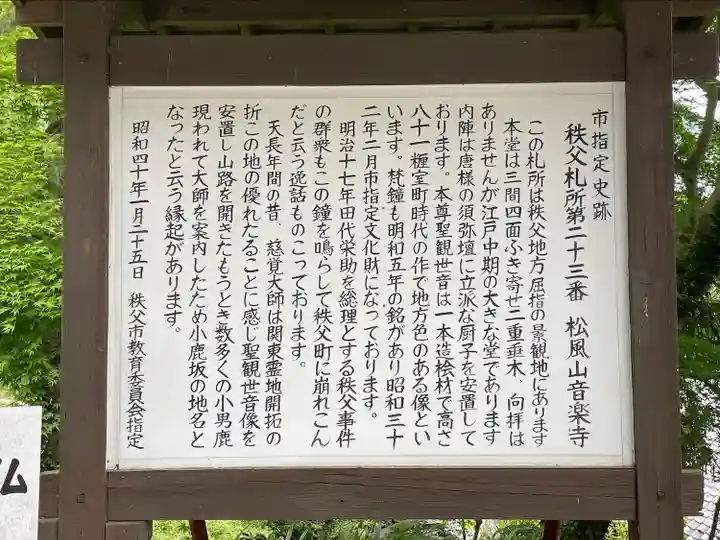 市指定史跡
秩父札所第二十三番 松風山音楽寺
この札所は秩父地方屈指の景観地にあります
本堂は三間四面ふき寄せ二重垂木、向拝は
ありませんが江戸中期の大きな堂であります
内陣は唐様の須弥壇に立派な厨子を安置して
おります。本尊聖観世音は一本造桧材で高さ
八十一糎室町時代の作で地方色のある像とい
います。梵鐘も明和五年の銘があり昭和三十
二年二月市指定文化財になっております。
明治十七年田代栄助を総理とする秩父事件
の群衆もこの鐘を鳴らして秩父町に崩れこん
だと云う逸話ものこっております。
天長年間の昔、慈覚大師は関東霊地開拓の
折この地の優れたることに感じ聖観世音像を
安置し山路を開きたもうとき数多くの小男鹿
現われて大師を案内したため小鹿坂の地名と
なったと云う縁起があります。
昭和四十年一月二十五日 秩父市教育委員会指定
仏